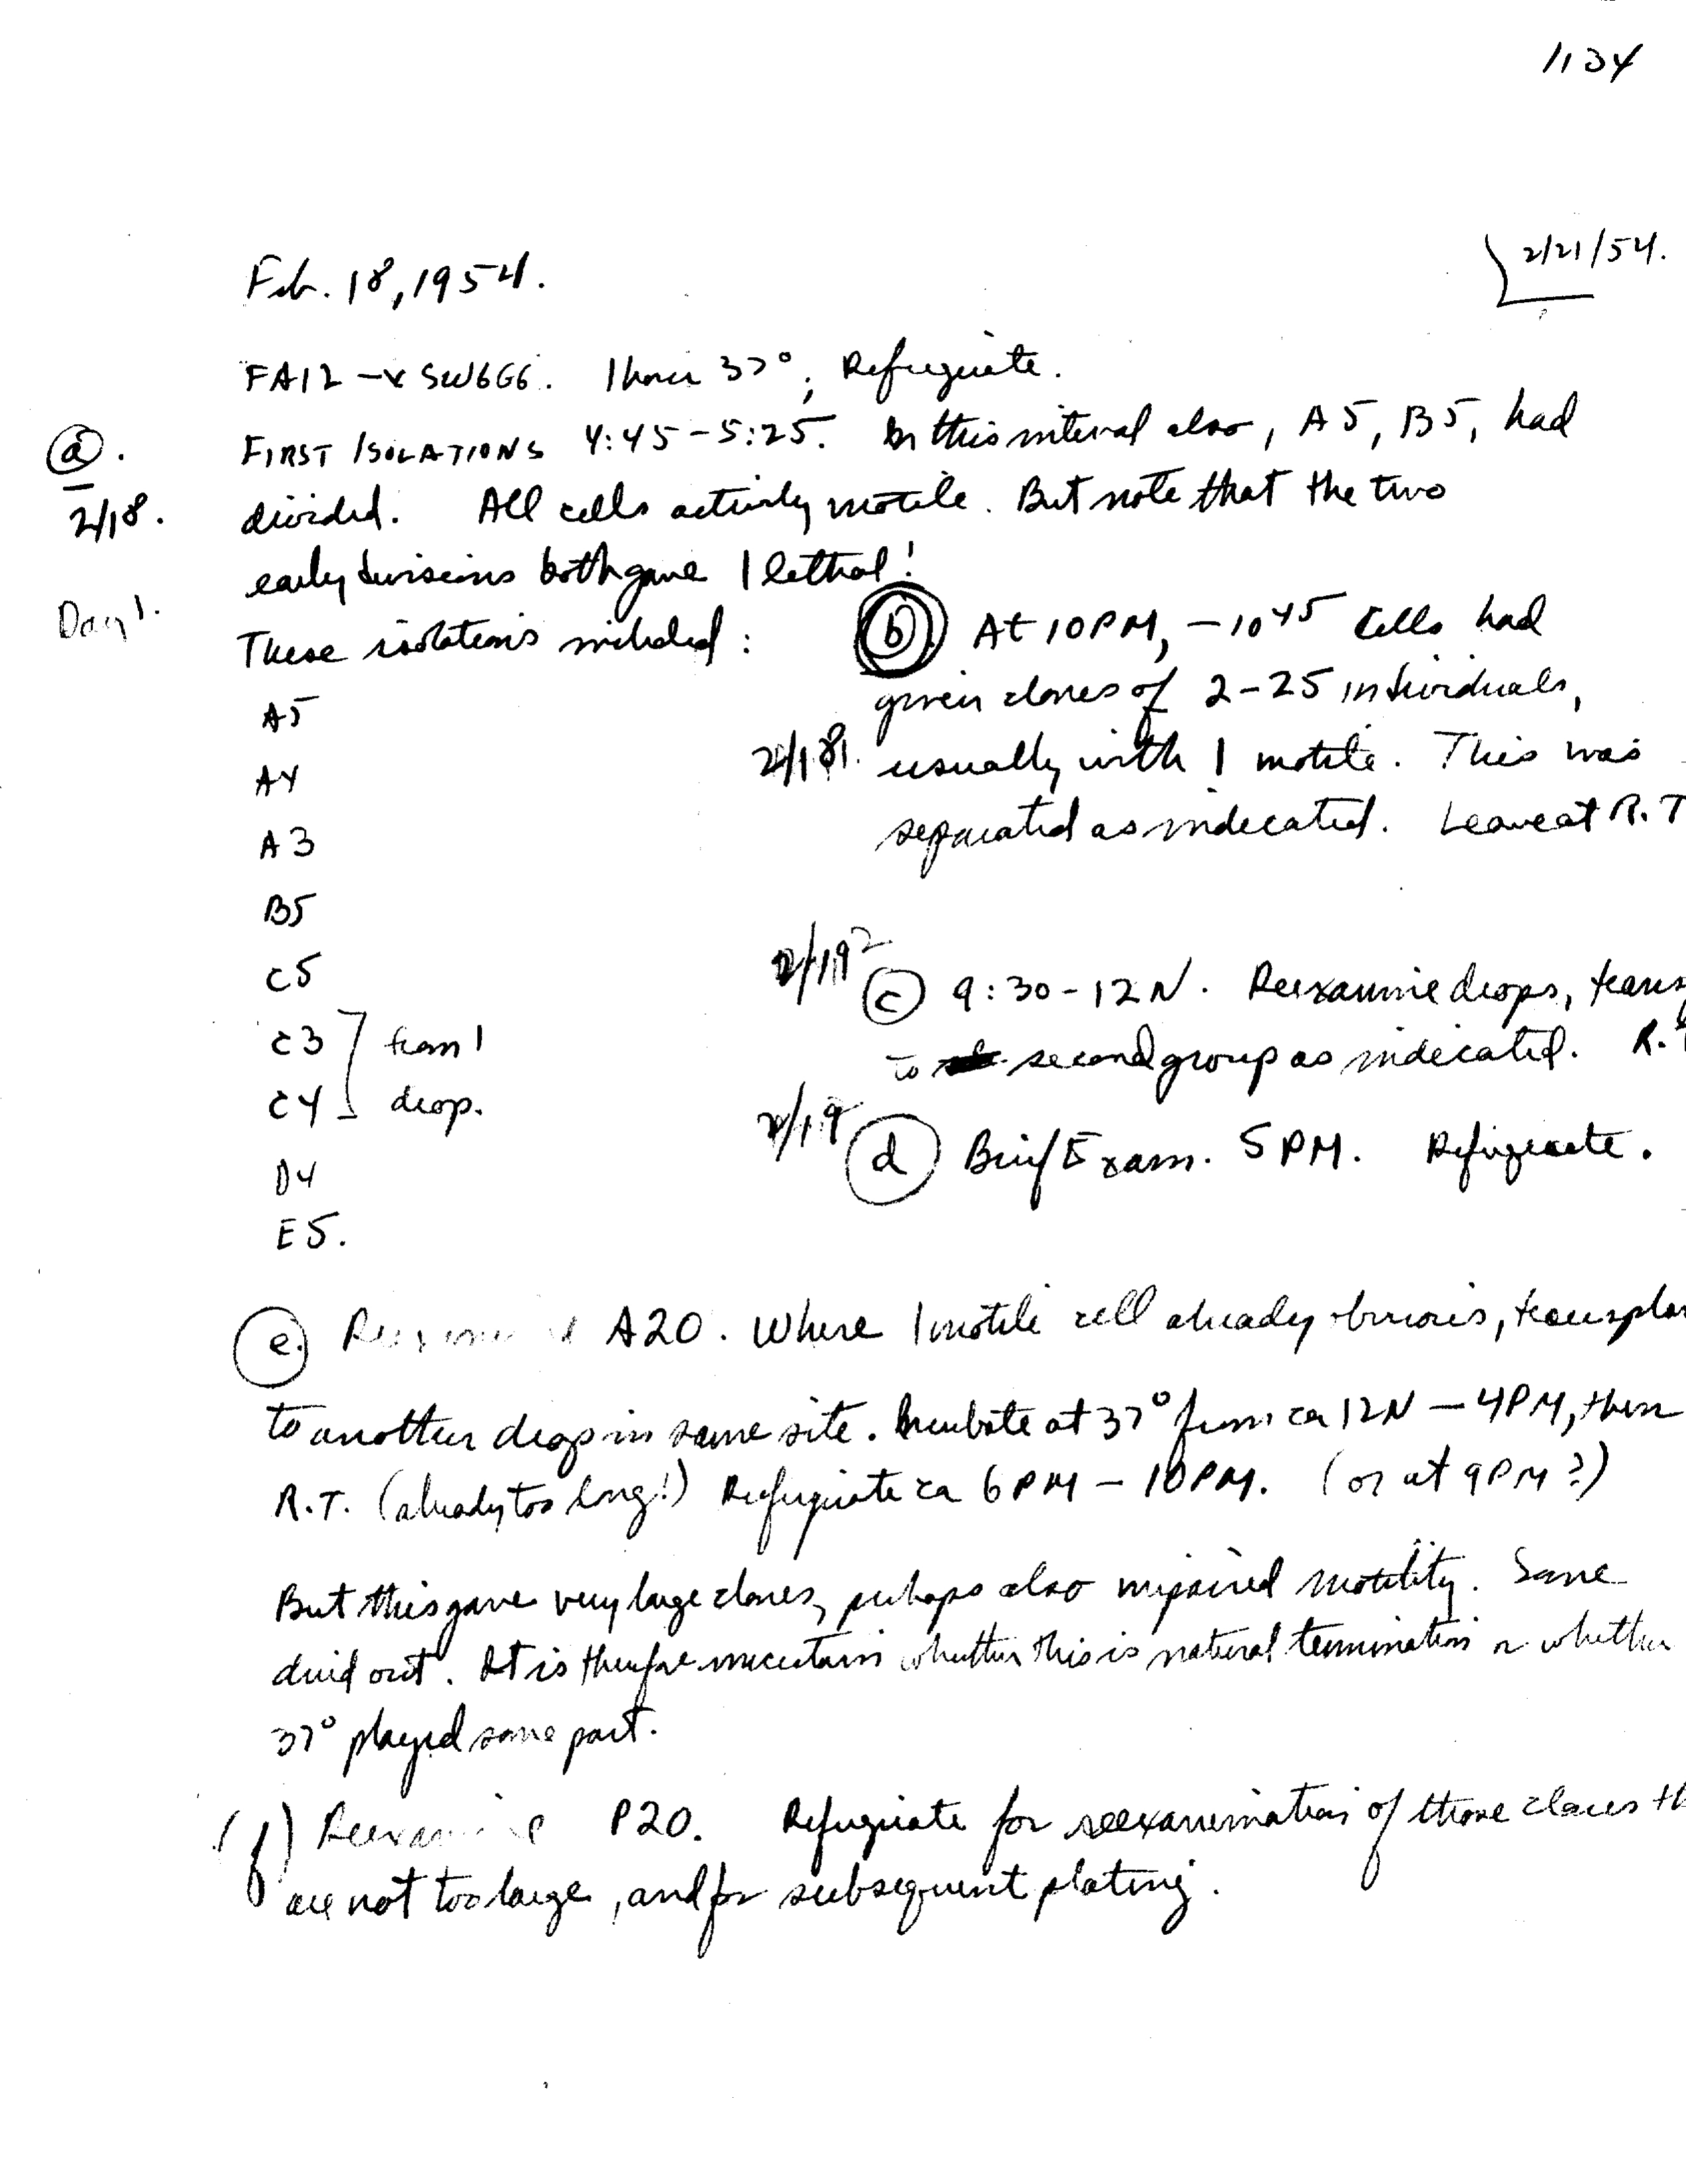 1134
Feb. 18, 1954.
2/21/54.
FA12 -x SW666. 1 hour 37°; Refrigerate.
(a). FIRST ISOLATIONS 4:45-5:25. In this interval also, A5, B5, had
2/18. divided. All cells actively motile. But note that the two
early divisions both gave 1 lethal!
Day 1.
These isolations included:
A5
A4
A3
B5
C5
C3 ] from 1
C4 ] drop.
D4
E5.
(b) At 10PM, -10 45 Cells had
given clones of 2-25 individuals,
2/18. usually with 1 motile. This was
separated as indicated. Leave at R.T
2/19
(c) 9:30-12N. Reexamine drops,
to second group as indicated. R.T
2/19
(d) Brief Exam. 5PM. Refrigerate.
(e.) A20. Where 1 motile cell already obvious,
to another drop in same site. Incubate at 37° from ca 12N - 4PM, then
R.T. (already too long!) Refrigerate ca 6PM - 10PM. (or at 9PM?)
But this gave very large clones, perhaps also impaired motility. Some
dried out. It is therefore uncertain whether this is natural termination or whether
37° played some part.
(f) Reexamine P20. Refrigerate for reexamination of those clones
are not too large, and for subsequent plating.